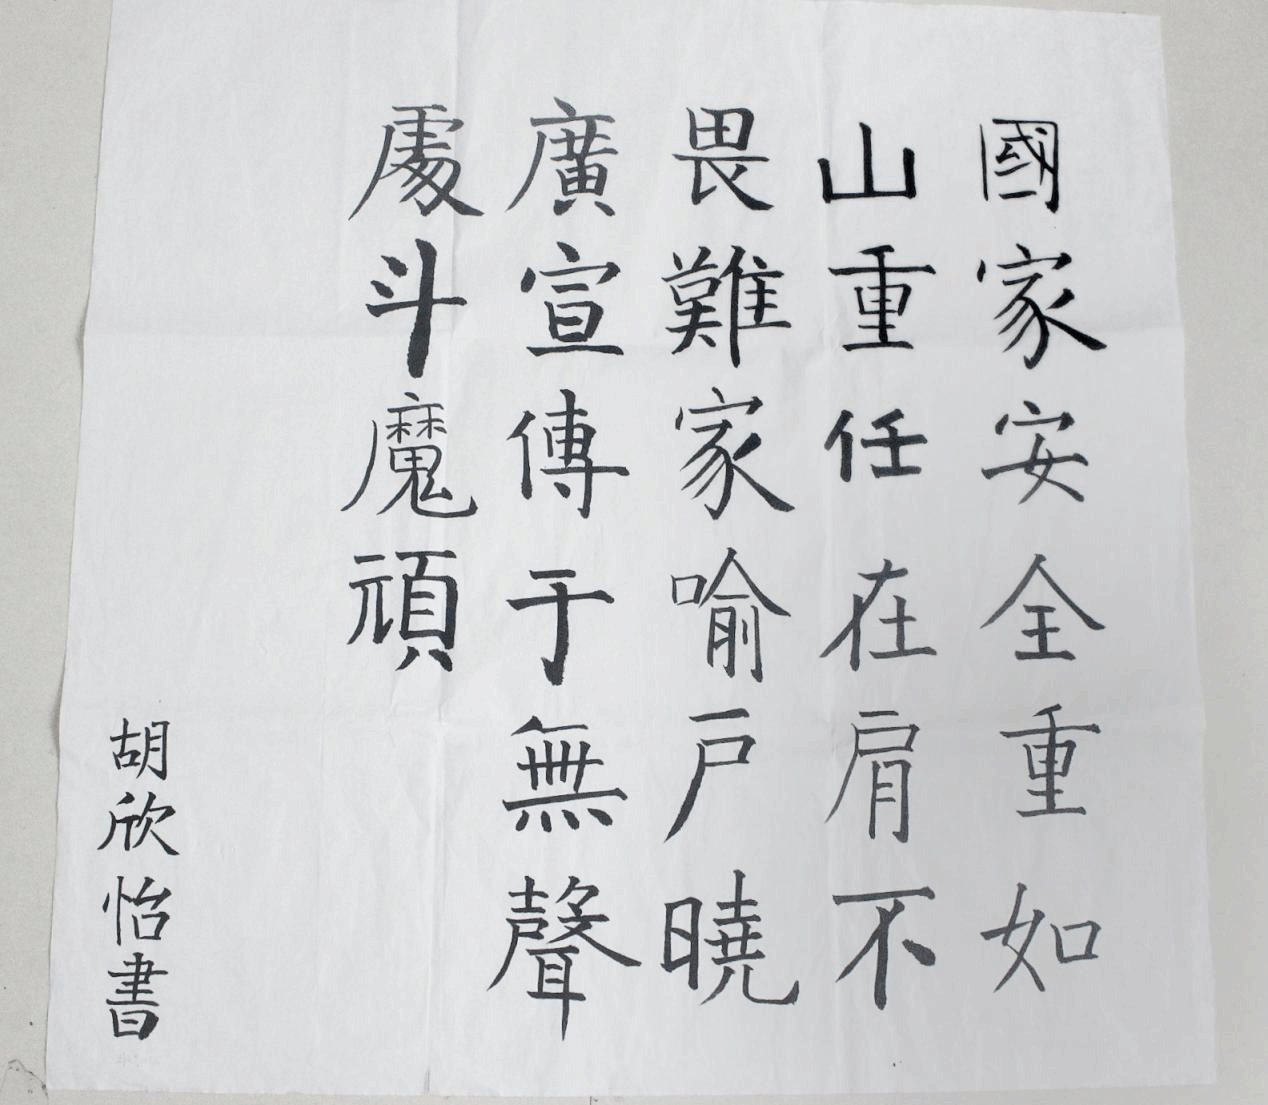 國家安全重如
山重任在肩不
畏難家喻戶曉
廣宣傳于無聲
處斗魔頑
胡欣怡書